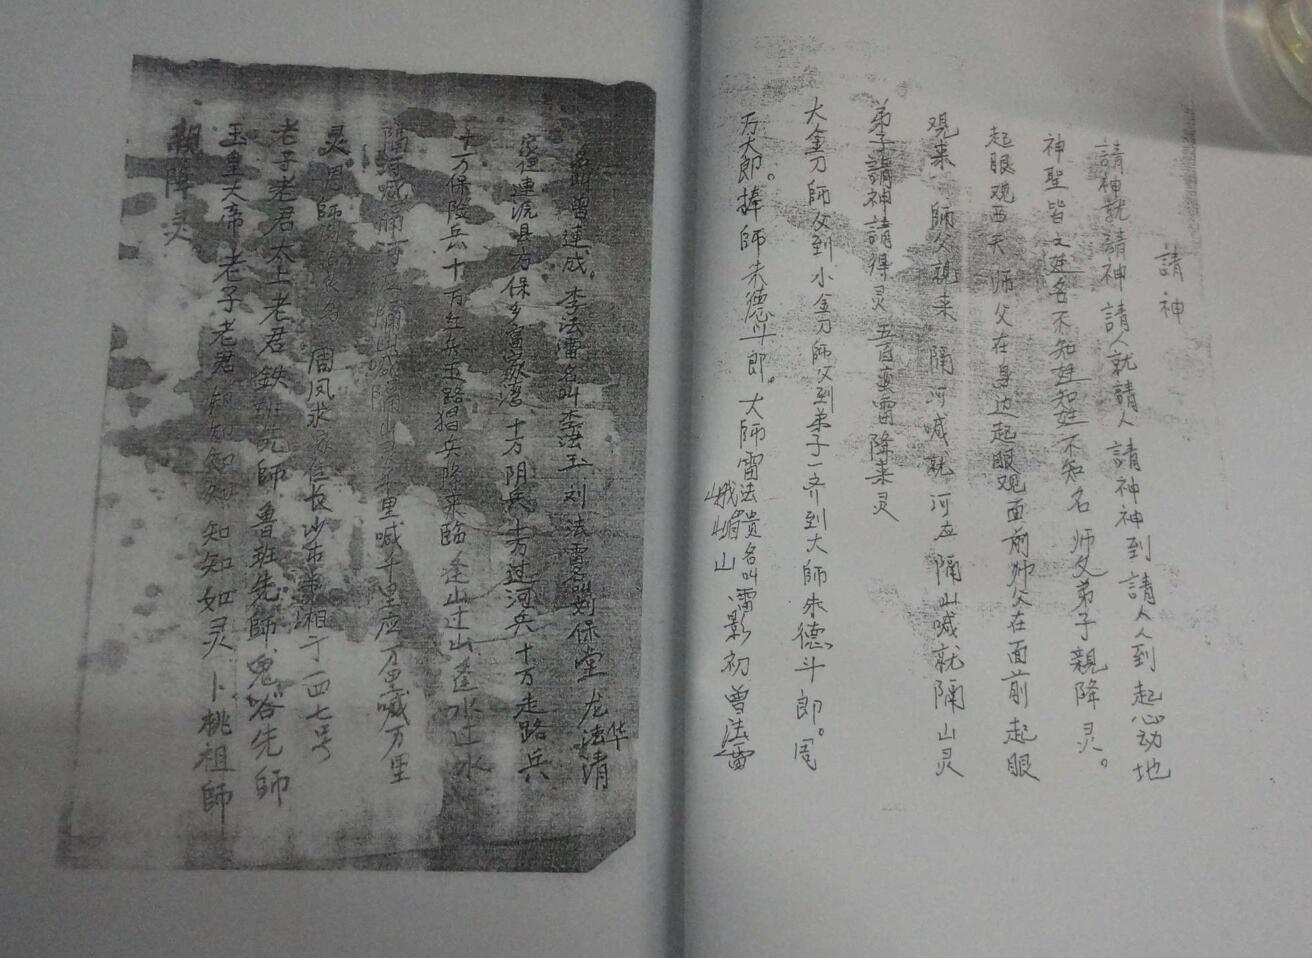 請神
請神就請神請人就請人請神神到請人人到起心动地
神聖皆之姓名不知姓知姓不知名师父弟子親降灵。
起眼观西天师父在身边起眼观面前师父在面前起眼
观来师父就来隔河喊就河应隔山喊就隔山灵
弟子請神請得灵五百蛮雷降来灵
大金刀师父到小金刀師父到弟子一齐到大師朱德斗郎。周
万大郎。捧師朱德斗郎。大师雷法贵名叫雷影初曾法雷
峨嵋山
名叫曾連成。李法雷名叫李法玉刘法雷名叫刘保堂龙法清
华
家住連源县方保乡富家湾、十万阴兵十万过河兵十万走路兵
十万保险兵十万红兵五路猖兵降来临逢山过山逢水过水
隔河喊隔河应隔山喊隔山千里喊千里应万里喊万里
灵。周凤求家住长沙市湘一四七号
老子老君太上老君鉄班先師魯班先師鬼谷先師
玉皇大帝老子老君知知如灵卜桃祖師
親降灵